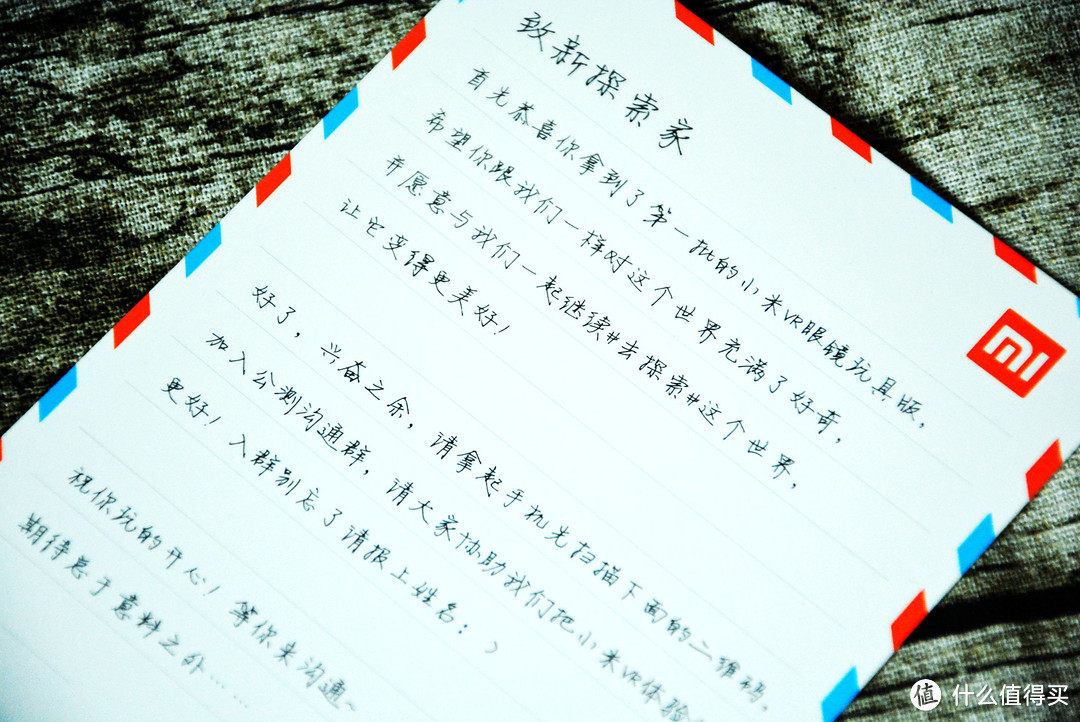 致新探索家
首先恭喜你拿到了第一批的小米VR眼镜玩具版，
希望你跟我们一样对这个世界充满了好奇，
并愿意与我们一起继续#去探索#这个世界，
让它变得更美好！
好了，兴奋之余，请拿起手机先扫描下面的二维码，
加入公测沟通群，请大家协助我们把小米VR体验
更好！入群别忘了请报上姓名：）
祝你玩的开心！等你来沟通~
期待总于意料之外……
MI
值 什么值得买